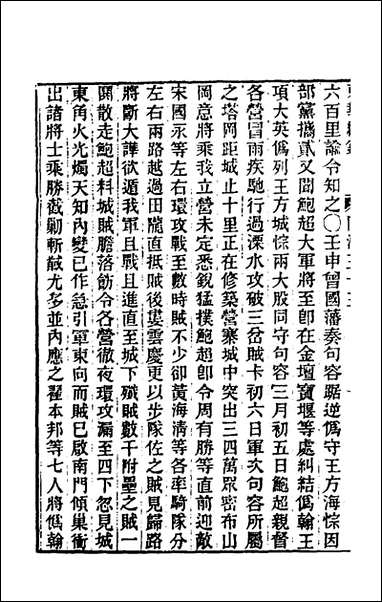 六百里諭令知之○壬申曾國藩奏句容踞逆僞守王方海悰因
部黨攜貳又聞鮑超大軍將至卽在金壇寶堰等處糾結僞翰王
項大英僞列王方城悰兩大股同守句容三月初五日鮑超親督
各營冒雨疾馳行過溧水攻破三岔賊卡初六日軍次句容所屬
之塔岡距城止十里正在修築營寨城中突出三四萬眾密布山
岡意將乘我立營未定悉銳猛撲鮑超卽令周有勝等直前迎敵
宋國永等左右環攻戰至數時賊不少卻黃海清等各率騎隊分
左右兩路越過田隴直抵賊後婁雲慶更以步隊佐之賊見歸路
將斷大譁欲遁我軍且戰且進直至城下殲賊數千附壘之賊一
鬨散走鮑超料城賊膽落飭令各營徹夜環攻漏至四下忽見城
東角火光燭天知內變已作急引軍東向而賊已啟南門傾巢衝
出諸將士乘勝截剿斬馘尤多並內應之翟本邦等七人將僞翰